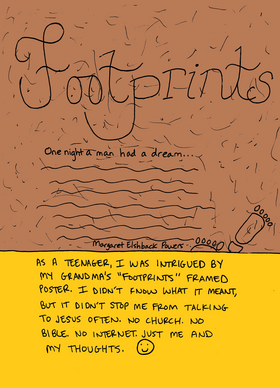 Footprints
One night a man had a dream....
Margaret Fishback Powers
AS A TEENAGER, I WAS INTRIGUED BY
MY GRANDMA'S "FOOTPRINTS" FRAMED
POSTER. I DIDN'T KNOW WHAT IT MEANT,
BUT IT DIDN'T STOP ME FROM TALKING
TO JESUS OFTEN. NO CHURCH. NO
BIBLE. NO INTERNET. JUST ME AND
MY THOUGHTS.